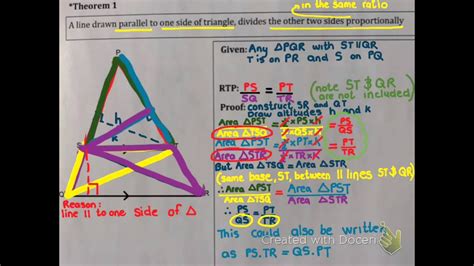 *Theorem 1
in the same ratio
A line drawn parallel to one side of triangle, divides the other two sides proportionally
Given: Any △PQR with ST∥QR
T is on PR and S on PQ
RTP: PS/SQ = PT/TR (note ST & QR are not included)
Proof: construct SR and QT
Draw altitudes h and k
Area △PST / Area △TSQ = ½×PS×h / ½×QS×h = PS/QS
Area △PST / Area △STR = ½×PT×k / ½×TR×k = PT/TR
But Area △TSQ = Area △STR
(same base, ST, between 11 lines ST & QR)
∴ Area △PST / Area △TSQ = Area △PST / Area △STR
∴ PS/QS = PT/TR
This could also be written
as PS.TR = QS.PT
P
h
k
S
T
Q
R
Reason:
line 11 to one side of △
Created with Doceri